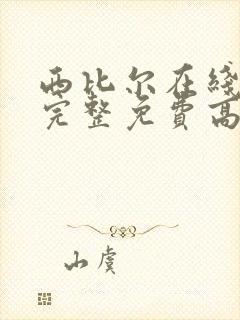 西比尔在线
完整免费高
山虞